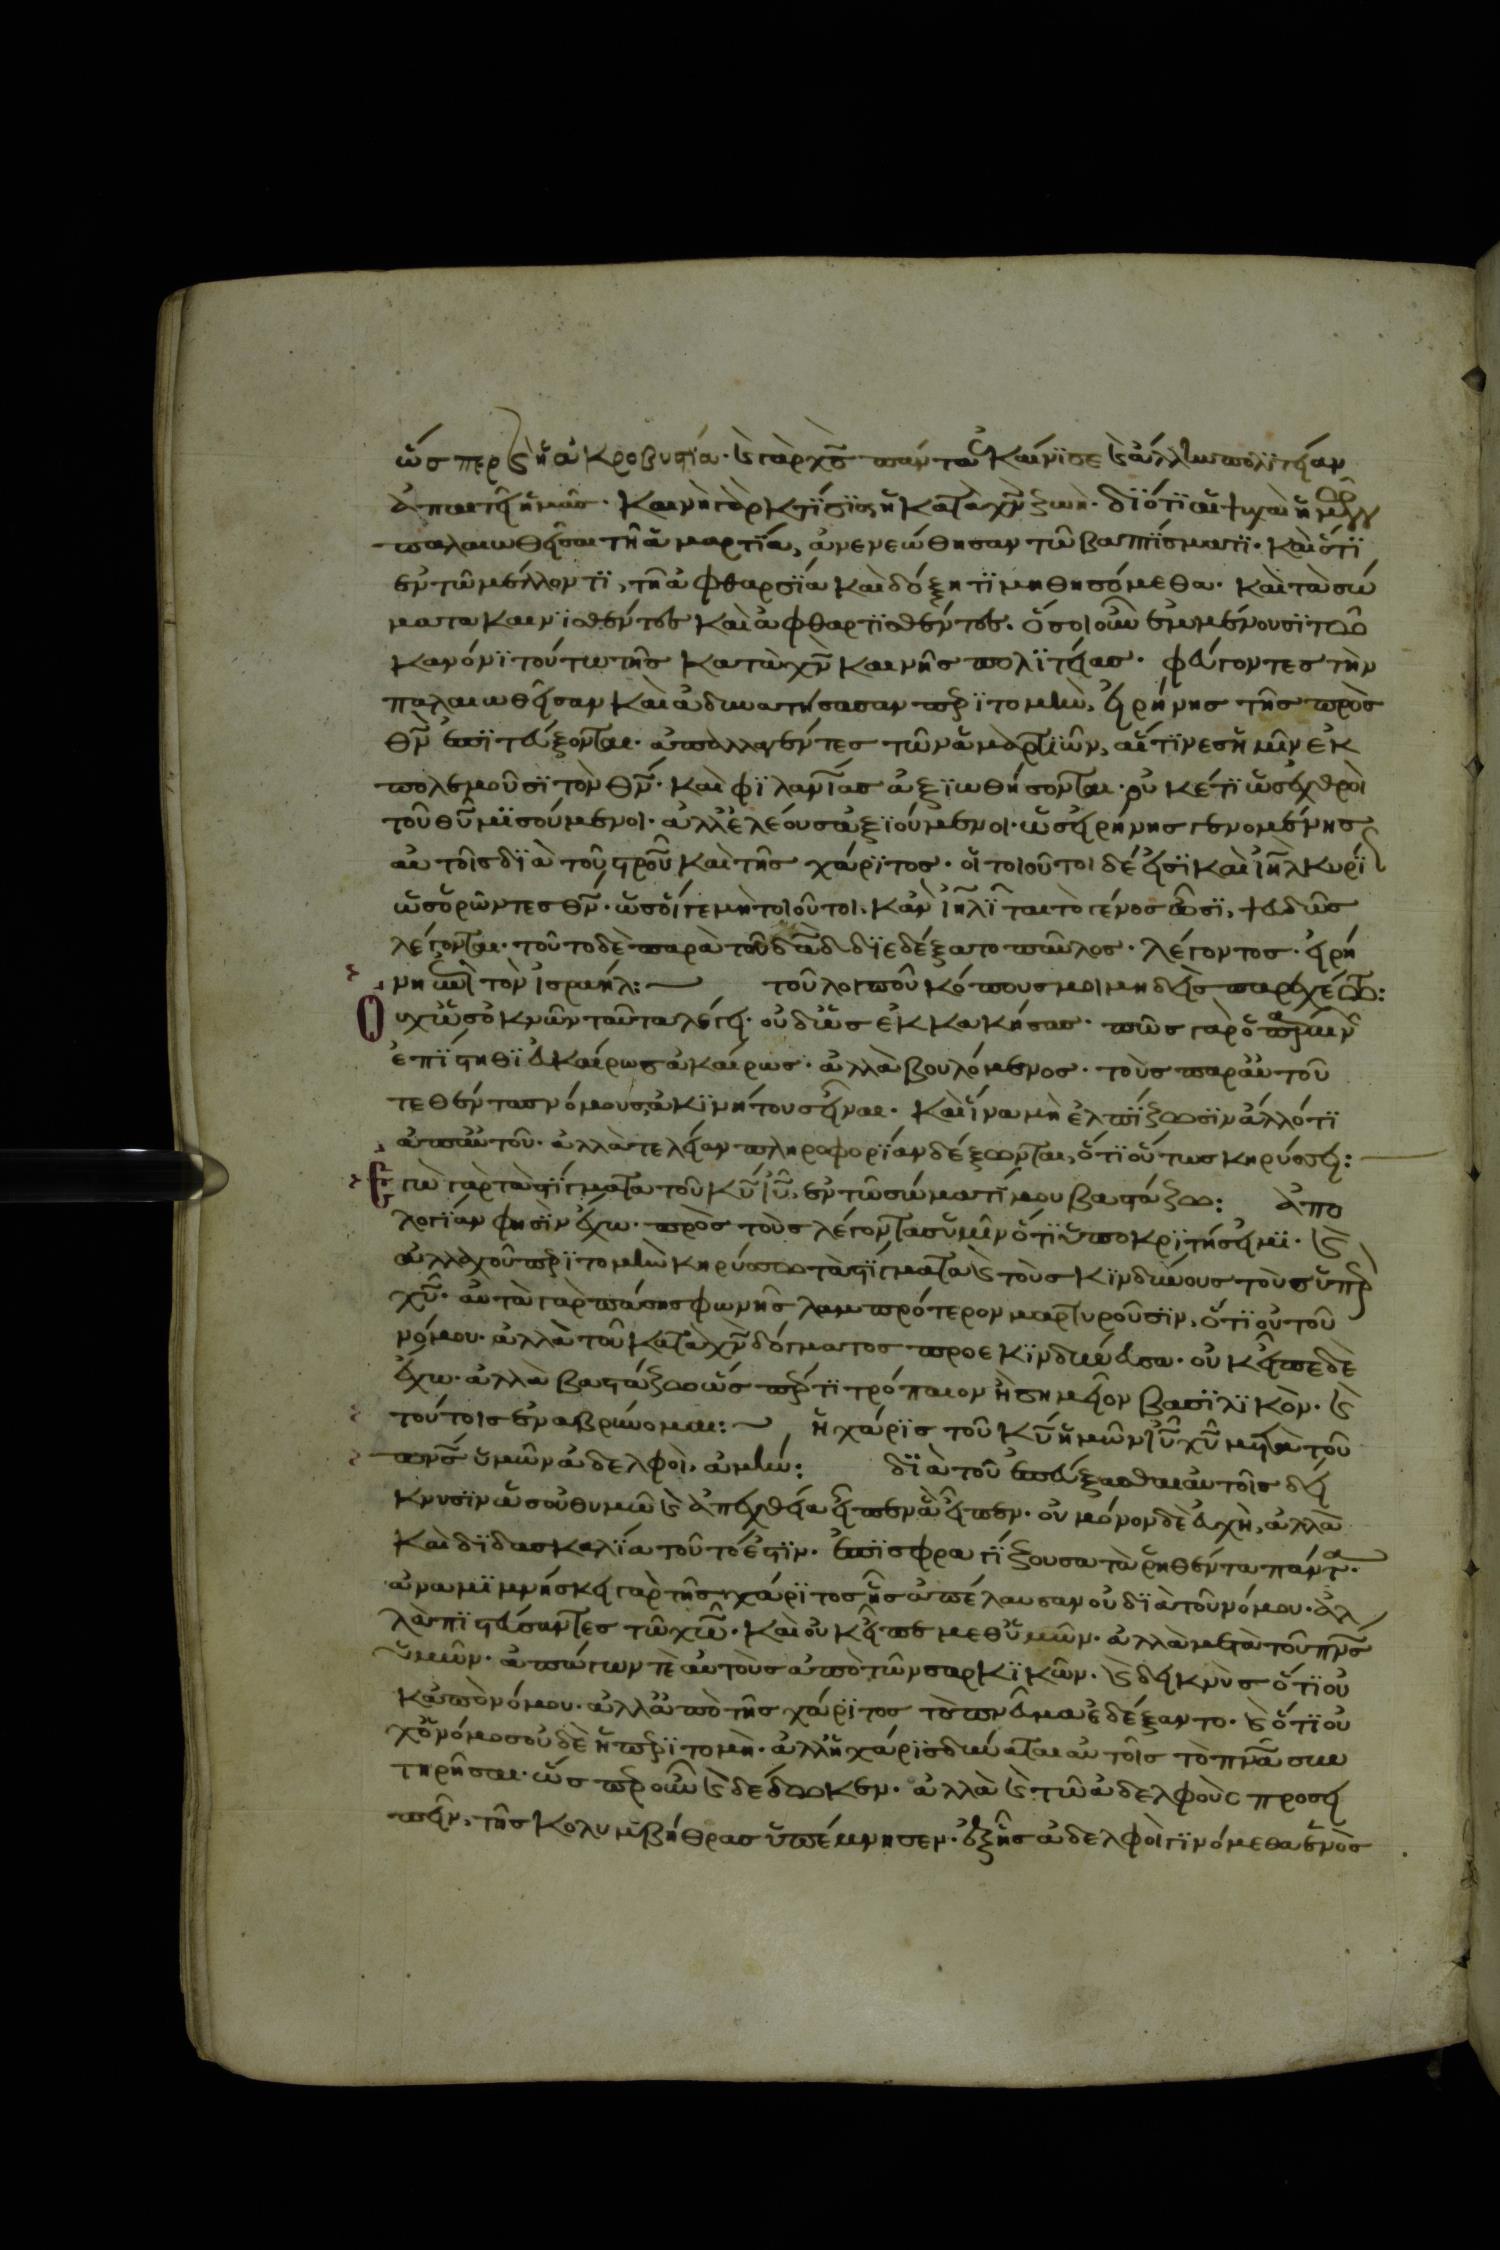 ὥσπερ καὶ ἡ ἀκροβυστία· καὶ γὰρ χς πάντα ἐκαίνισε καὶ ἄλλην πολιτείαν
ἀπαιτεῖ ἡμᾶς· καινὴ γὰρ κτίσις, ἡ κατὰ χν ζωή· διότι αἱ ψυχαὶ ἡμῶν
παλαιωθεῖσαι τῆ ἁμαρτία, ἀνενεώθησαν τῶ βαπτίσματι· καὶ ὅτι
ἐν τῶ μέλλοντι, τῆ ἀφθαρσία καὶ δόξη τιμηθησόμεθα· καὶ τὰ σώ
ματα καινισθέντες καὶ ἀφθαρτισθέντες. ὅσοι οὖν ἐμμένουσι τῶ
κανόνι τούτω τῆς κατὰ χν καινῆς πολιτείας· φεύγοντες τὴν
παλαιωθεῖσαν καὶ ἀδυνατήσασαν περιτομὴν, εἰρήνης τῆς πρὸς
θν ἐπιτεύξονται· ἀπαλλαγέντες τῶν ἁμαρτιῶν, αἵτινες ἡμῖν ἐκ
πολεμοῦσι τὸν θν· καὶ φιλανίας ἀξιωθήσονται· οὐκέτι ὡς ἐχθροὶ
τοῦ θυ μισούμενοι· ἀλλ' ἐλέους ἀξιούμενοι· ὡς εἰρήνης γενομένης
αὐτοῖς διὰ τοῦ στροῦ καὶ τῆς χάριτος· οἱ τοιοῦτοι δέ εἰσι καὶ ιηλ κυρί
ως ὁρῶντες θν· ὡς οἵγε μὴ τοιοῦτοι, κἂν ιηλῖται τὸ γένος ὦσι, ψευδῶς
λέγονται· τοῦτο δὲ παρὰ τοῦ δαδ διεδέξατο παῦλος· λέγοντος· εἰρή
νη ἐπὶ τὸν ισραήλ:~ τοῦ λοιποῦ κόπους μοι μηδεὶς παρεχέτω:
Οὐχ ὡς ὀκνῶν ταῦτα λέγει· οὐδ' ὡς ἐκκακήσας· πῶς γὰρ ὁ
ἐπίστηθι εὐκαίρως ἀκαίρως· ἀλλὰ βουλόμενος· τοὺς παρ' αὐτοῦ
τεθέντας νόμους, ἀκινήτους εἶναι· καὶ ἵνα μὴ ἐλπίζωσιν ἄλλό τι
ἀπ' αὐτοῦ· ἀλλὰ τελείαν πληροφορίαν δέξωνται, ὅτι οὕτως κηρύσσει:
Ἐγὼ γὰρ τὰ στίγματα τοῦ κυ ιυ, ἐν τῶ σώματί μου βαστάζω: ἀπο
λογίαν φησὶν ἔχω· πρὸς τοὺς λέγοντας ὑμῖν ὅτι ὑποκριτής εἰμι· καὶ
ἀλλαχοῦ περιτομὴν κηρύσσω τὰ στίγματα καὶ τοὺς κινδύνους τοὺς ὑπὲρ
χυ· αὐτὰ γὰρ πάσης φωνῆς λαμπρότερον μαρτυροῦσιν, ὅτι οὐ τοῦ
νόμου· ἀλλὰ τοῦ κατὰ χν δόγματος προεκινδύνευσα· οὐκ εἶπε δὲ
ἔχω· ἀλλὰ βαστάζω ὥσπερ τι τρόπαιον ἢ σημεῖον βασιλικὸν· καὶ
τούτοις ἐναβρύνομαι:~ ἡ χάρις τοῦ κυ ἡμῶν ιυ χυ μετὰ τοῦ
πνς ὑμῶν ἀδελφοὶ, ἀμήν: διὰ τοῦ ἐπεύξασθαι αὐτοῖς δεί
κνυσιν ὡς οὐ θυμῶ καὶ ἀπεχθεία εἶπεν ἃ εἶπεν· οὐ μόνον δὲ εὐχὴ, ἀλλὰ
καὶ διδασκαλία τοῦτό ἐστιν· ἐπισφραγίζουσα τὰ ῥηθέντα πάντα·
ἀναμιμνήσκει γὰρ τῆς χάριτος ἧς ἀπέλαυσαν οὐ διὰ τοῦ νόμου· ἀλ
λὰ πιστεύσαντες τῶ χω· καὶ οὐκ εἶπε μεθ' ὑμῶν· ἀλλὰ μετὰ τοῦ πνς
ὑμῶν· ἀπάγων τὲ αὐτοὺς ἀπὸ τῶν σαρκικῶν· καὶ δεικνὺς ὅτι οὐ
κ ἀπὸ νόμου· ἀλλ' ἀπὸ τῆς χάριτος τὸ πνεῦμα ἐδέξαντο· καὶ ὅτι οὐ
χ' ὁ νόμος οὐδὲ ἡ περιτομὴ· ἀλλ' ἡ χάρις δύναται αὐτοῖς τὸ πνα συν
τηρῆσαι· ὥσπερ οὖν καὶ δέδωκεν· ἀλλὰ καὶ τῶ ἀδελφοὺς προσει
πεῖν, τῆς κολυμβήθρας ὑπέμνησεν· ἐξ ἧς ἀδελφοὶ γινόμεθα ἑνὸς